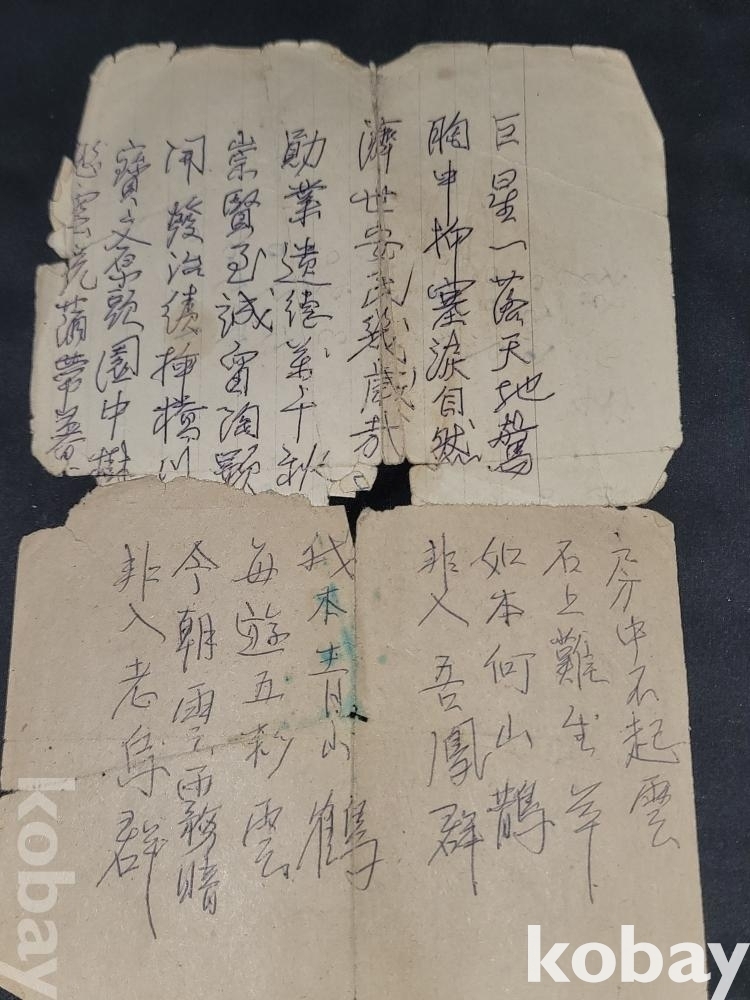 巨星一落天地驚
胸中抑塞淚自然
濟世安民幾歲哉
勛業遺德萬千秋
崇賢至誠
開發治績川
寶文頭園中樹
帶暮
房中不起雲
石上難生草
如本何山鵲
非入吾鳳群
我本靑山鶴
每遊五彩雲
今朝雨霧暗
非入老烏群
kobay
kobay